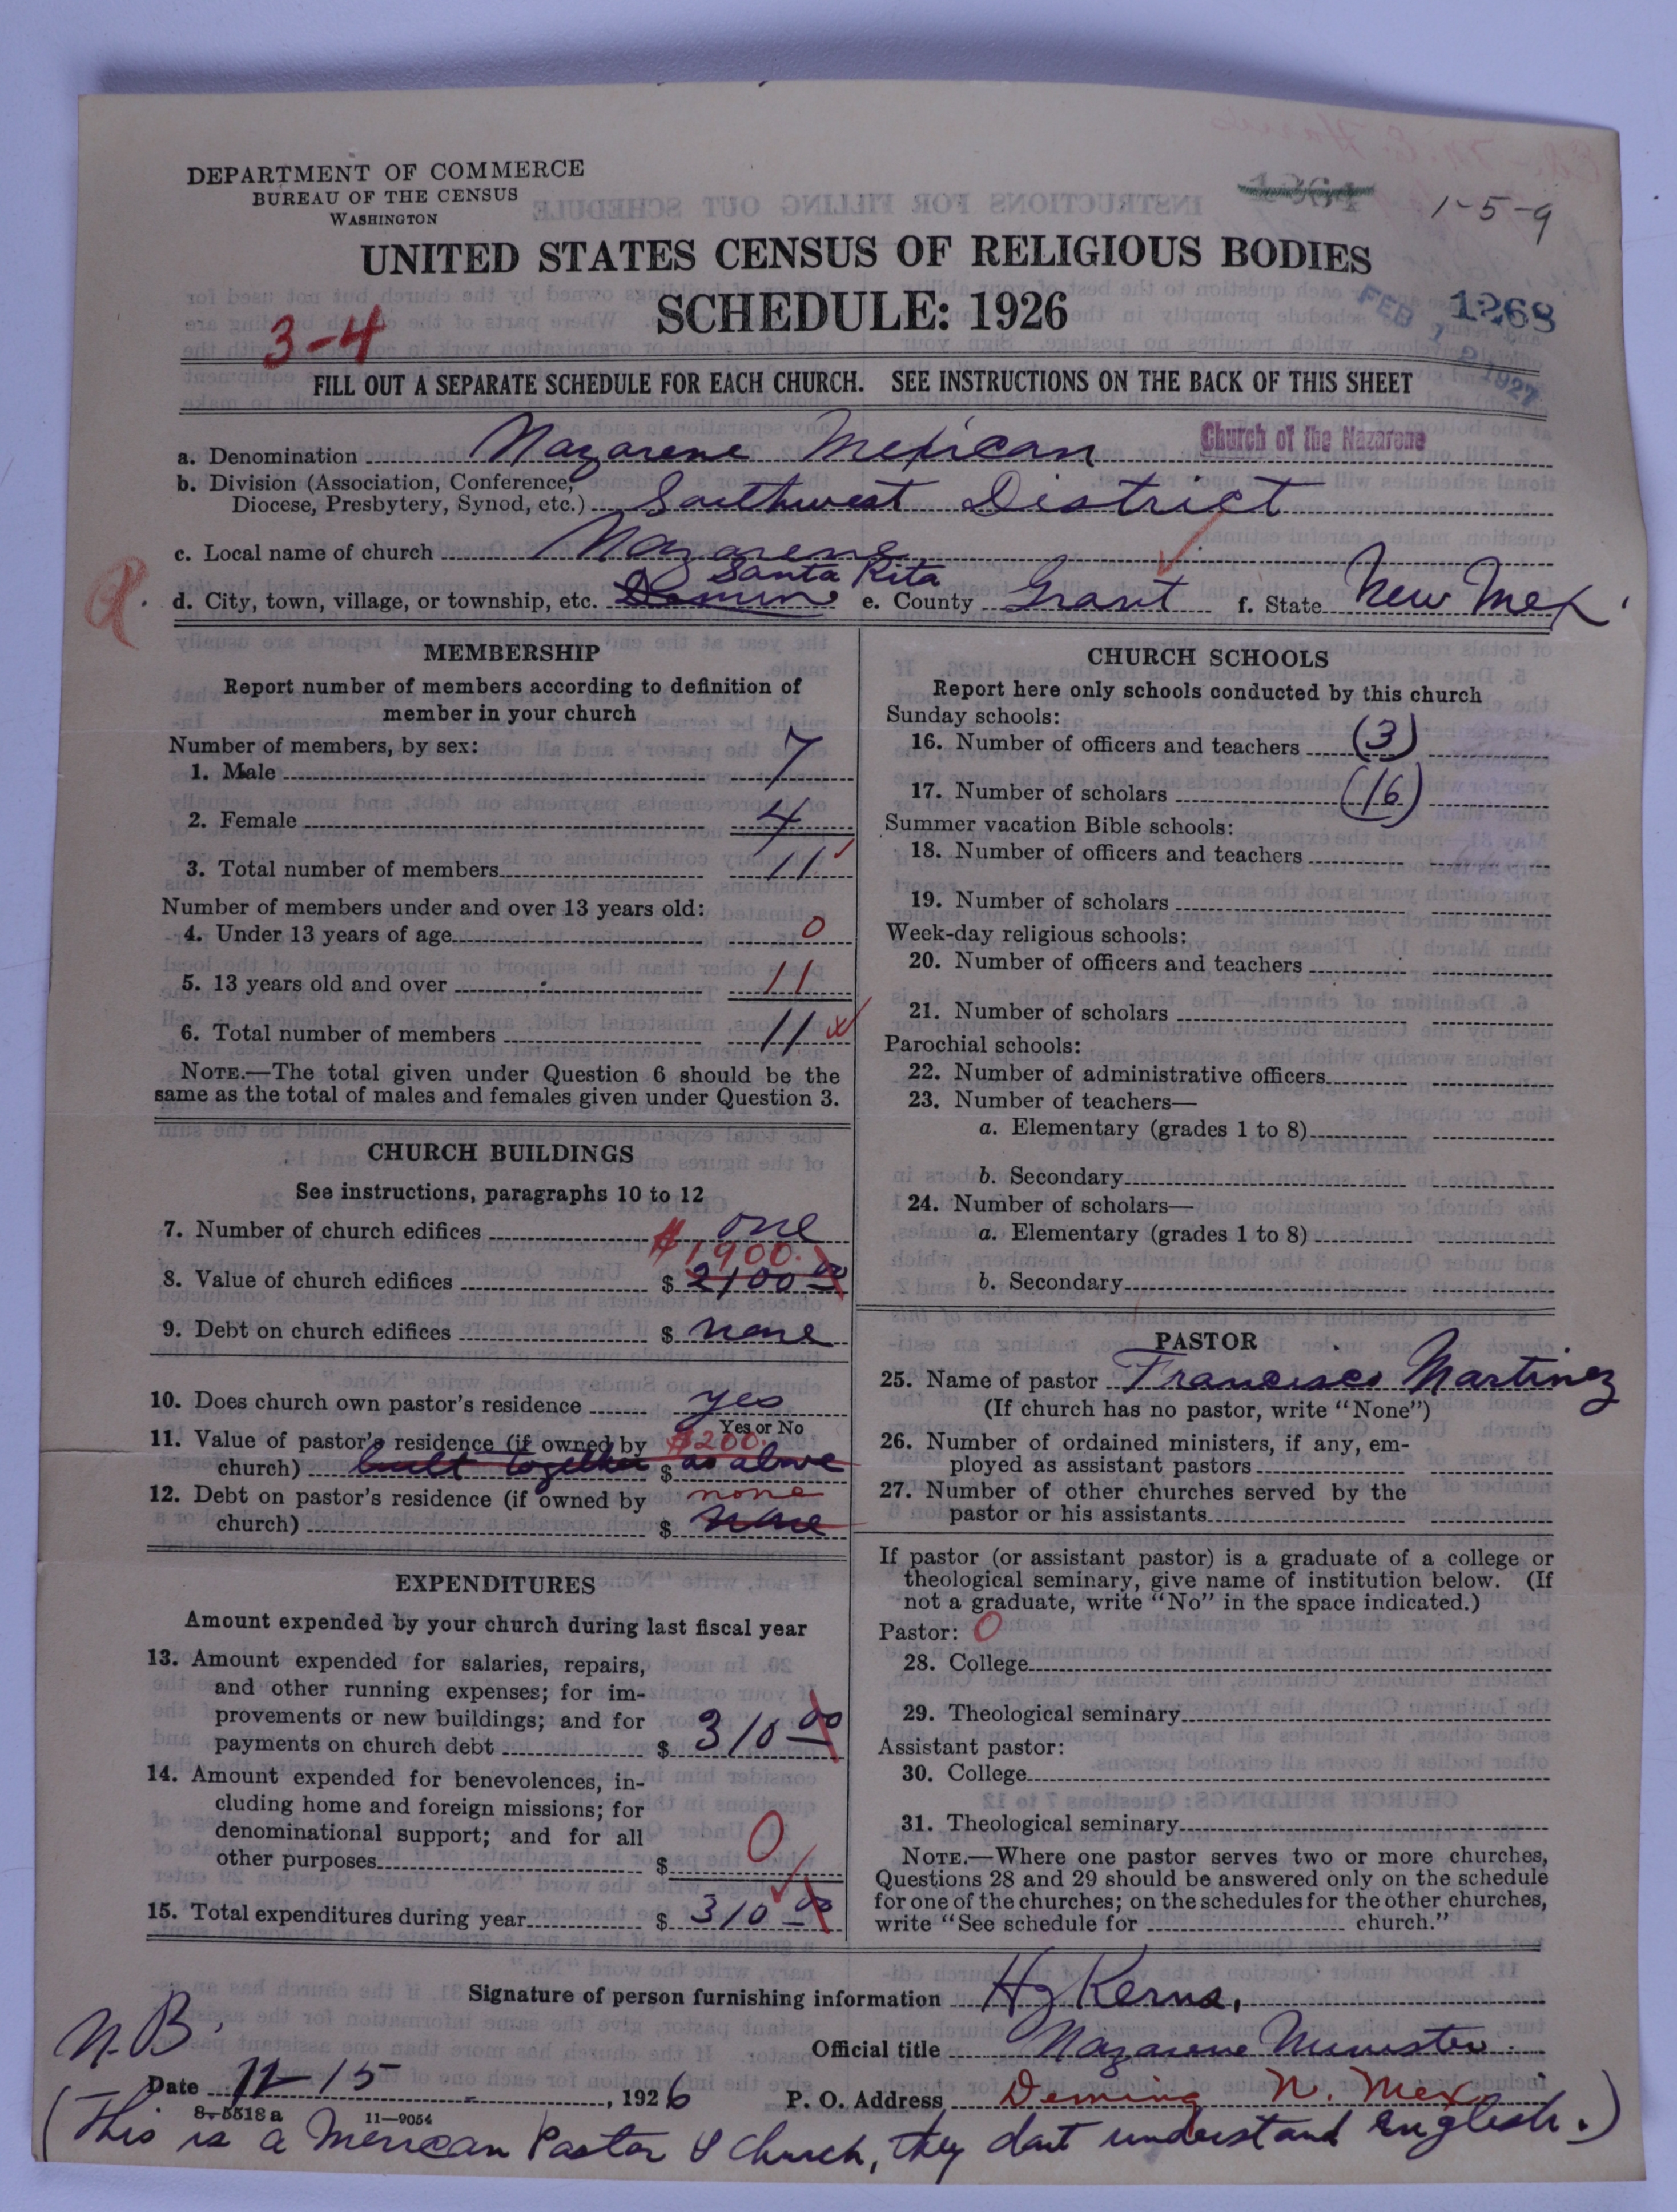 DEPARTMENT OF COMMERCE
BUREAU OF THE CENSUS
WASHINGTON
1-5-9
UNITED STATES CENSUS OF RELIGIOUS BODIES
SCHEDULE: 1926
3-4
1268
FEB 1927
FILL OUT A SEPARATE SCHEDULE FOR EACH CHURCH. SEE INSTRUCTIONS ON THE BACK OF THIS SHEET
a. Denomination Nazarene Mexican Church of the Nazarene
b. Division (Association, Conference,
Diocese, Presbytery, Synod, etc.) Southwest District
c. Local name of church Nazarene
Santa Rita
d. City, town, village, or township, etc. e. County Grant f. State New Mex.
MEMBERSHIP
Report number of members according to definition of
member in your church
Number of members, by sex:
1. Male 7
2. Female 4
3. Total number of members 11
Number of members under and over 13 years old:
4. Under 13 years of age 0
5. 13 years old and over 11
6. Total number of members 11
NOTE.—The total given under Question 6 should be the
same as the total of males and females given under Question 3.
CHURCH BUILDINGS
See instructions, paragraphs 10 to 12
7. Number of church edifices one
$1900.
8. Value of church edifices $ 2100 00
9. Debt on church edifices $ none
10. Does church own pastor's residence yes
Yes or No
11. Value of pastor's residence (if owned by $200.
church) built together $ as above
12. Debt on pastor's residence (if owned by none
church) $ none
EXPENDITURES
Amount expended by your church during last fiscal year
13. Amount expended for salaries, repairs,
and other running expenses; for im-
provements or new buildings; and for
payments on church debt $ 310 00
14. Amount expended for benevolences, in-
cluding home and foreign missions; for
denominational support; and for all
other purposes $ 0
15. Total expenditures during year $ 310 00
CHURCH SCHOOLS
Report here only schools conducted by this church
Sunday schools:
16. Number of officers and teachers (3)
17. Number of scholars (16)
Summer vacation Bible schools:
18. Number of officers and teachers
19. Number of scholars
Week-day religious schools:
20. Number of officers and teachers
21. Number of scholars
Parochial schools:
22. Number of administrative officers
23. Number of teachers—
a. Elementary (grades 1 to 8)
b. Secondary
24. Number of scholars—
a. Elementary (grades 1 to 8)
b. Secondary
PASTOR
25. Name of pastor Francisco Martinez
(If church has no pastor, write "None")
26. Number of ordained ministers, if any, em-
ployed as assistant pastors
27. Number of other churches served by the
pastor or his assistants
If pastor (or assistant pastor) is a graduate of a college or
theological seminary, give name of institution below. (If
not a graduate, write "No" in the space indicated.)
Pastor: 0
28. College
29. Theological seminary
Assistant pastor:
30. College
31. Theological seminary
NOTE.—Where one pastor serves two or more churches,
Questions 28 and 29 should be answered only on the schedule
for one of the churches; on the schedules for the other churches,
write "See schedule for church."
Signature of person furnishing information Kerns,
Official title Nazarene Minister
N.B.
Date 12-15, 1926 P. O. Address Deming N. Mex
8-5518a 11-9054
(This is a Mexican Pastor & Church, they dont understand English.)